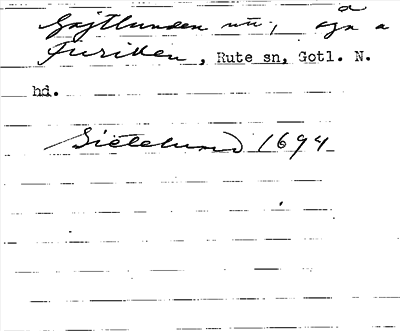 Gajtlunden nu, äga å
Furiden, Rute sn, Gotl. N.
hd.
Sietelund 1694